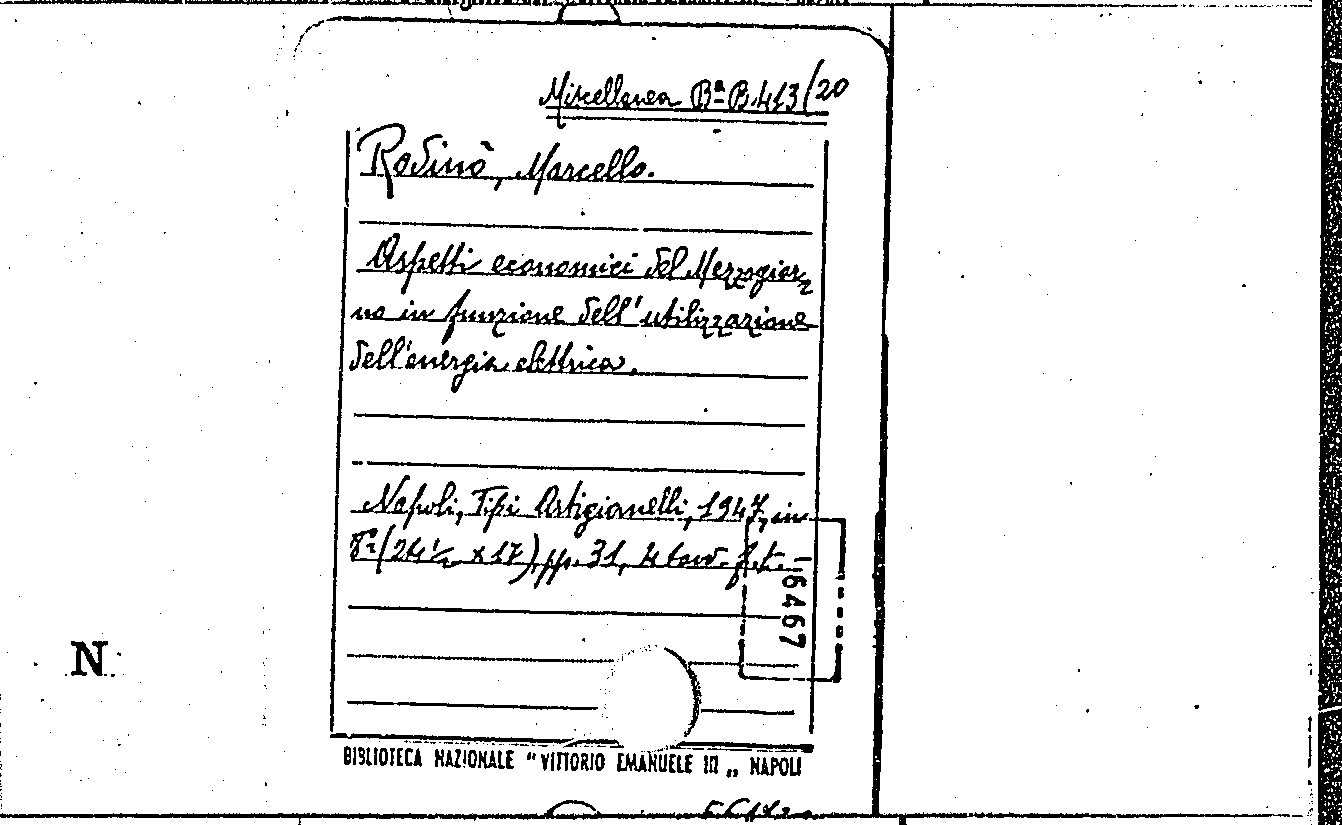 Miscellanea Bª B.413/20
Rodinò, Marcello.
Aspetti economici del Mezzogior
no in funzione dell'utilizzazione
dell'energia elettrica.
Napoli, Tipi Artigianelli, 1947, in
8º (24 ½ x 17), pp. 31, 4 tav. f.t.
16467
N
BIBLIOTECA NAZIONALE "VITTORIO EMANUELE III„ NAPOLI